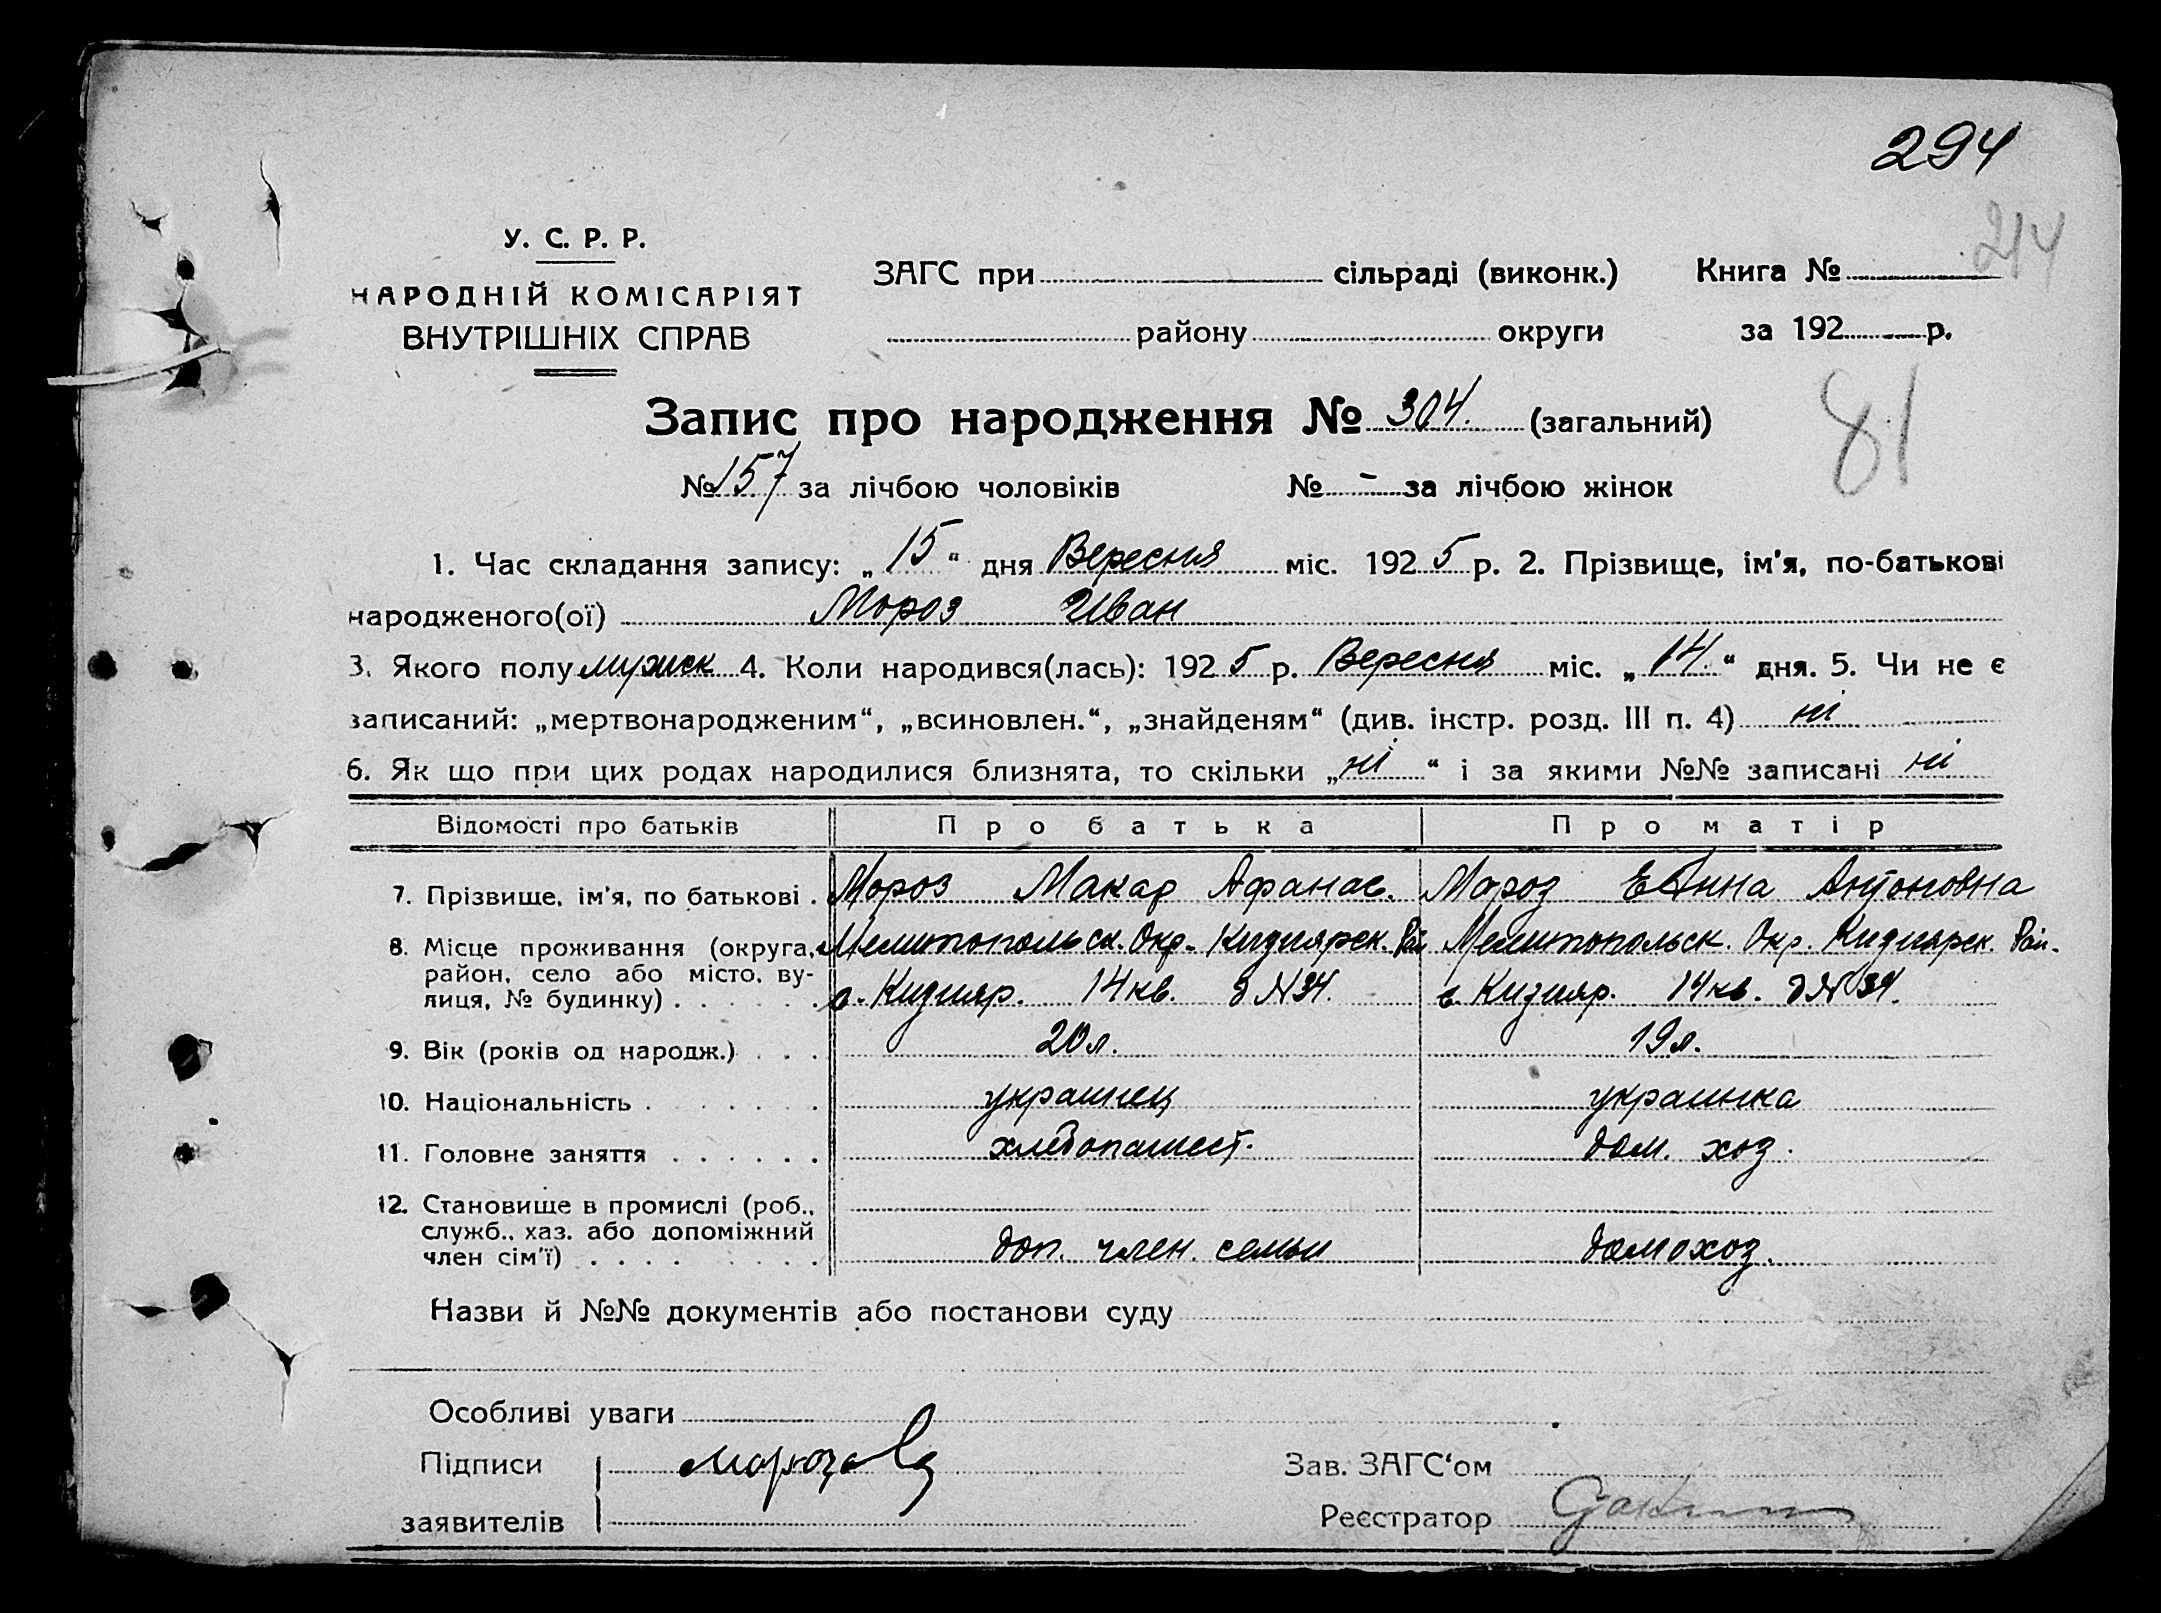 294
214
У. С. Р. Р.
НАРОДНІЙ КОМІСАРІЯТ
ВНУТРІШНІХ СПРАВ
ЗАГС при сільраді (виконк.) Книга №
району округи за 192 р.
81
Запис про народження № 304. (загальний)
№ 157 за лічбою чоловіків № - за лічбою жінок
1. Час складання запису: „15“ дня Вересня міс. 1925 р. 2. Прізвище, ім'я, по-батькові
народженого(ої) Мороз Иван
3. Якого полу мужск 4. Коли народився(лась): 1925 р. Вересня міс. „14.“ дня. 5. Чи не є
записаний: „мертвонародженим“, „всиновлен.“, „знайденям“ (див. інстр. розд. III п. 4) ні
6. Як що при цих родах народилися близнята, то скільки „ні“ і за якими №№ записані ні
Відомості про батьків Про батька Про матір
7. Прізвище, ім'я, по батькові . Мороз Макар Афанас. Мороз Анна Антоновна
8. Місце проживання (округа, Мелитопольск. Окр. Кизиярск. Рай Мелитопольск. Окр. Кизиярск. Рай.
район, село або місто, ву-
лиця, № будинку) . . . . . с. Кизияр. 14 кв. д N 34. с. Кизияр. 14 кв. д № 34.
9. Вік (років од народж.) . . . 20 л. 19 л.
10. Національність . . . . . . украинец украинка
11. Головне заняття . . . . . . хлебопашест. дом. хоз.
12. Становище в промислі (роб.,
служб., хаз. або допоміжний
член сім'ї) . . . . . . . . . доп. член. семьи домохоз.
Назви й №№ документів або постанови суду
Особливі уваги
Підписи Морозов Зав. ЗАГС‘ом
заявителів Реєстратор